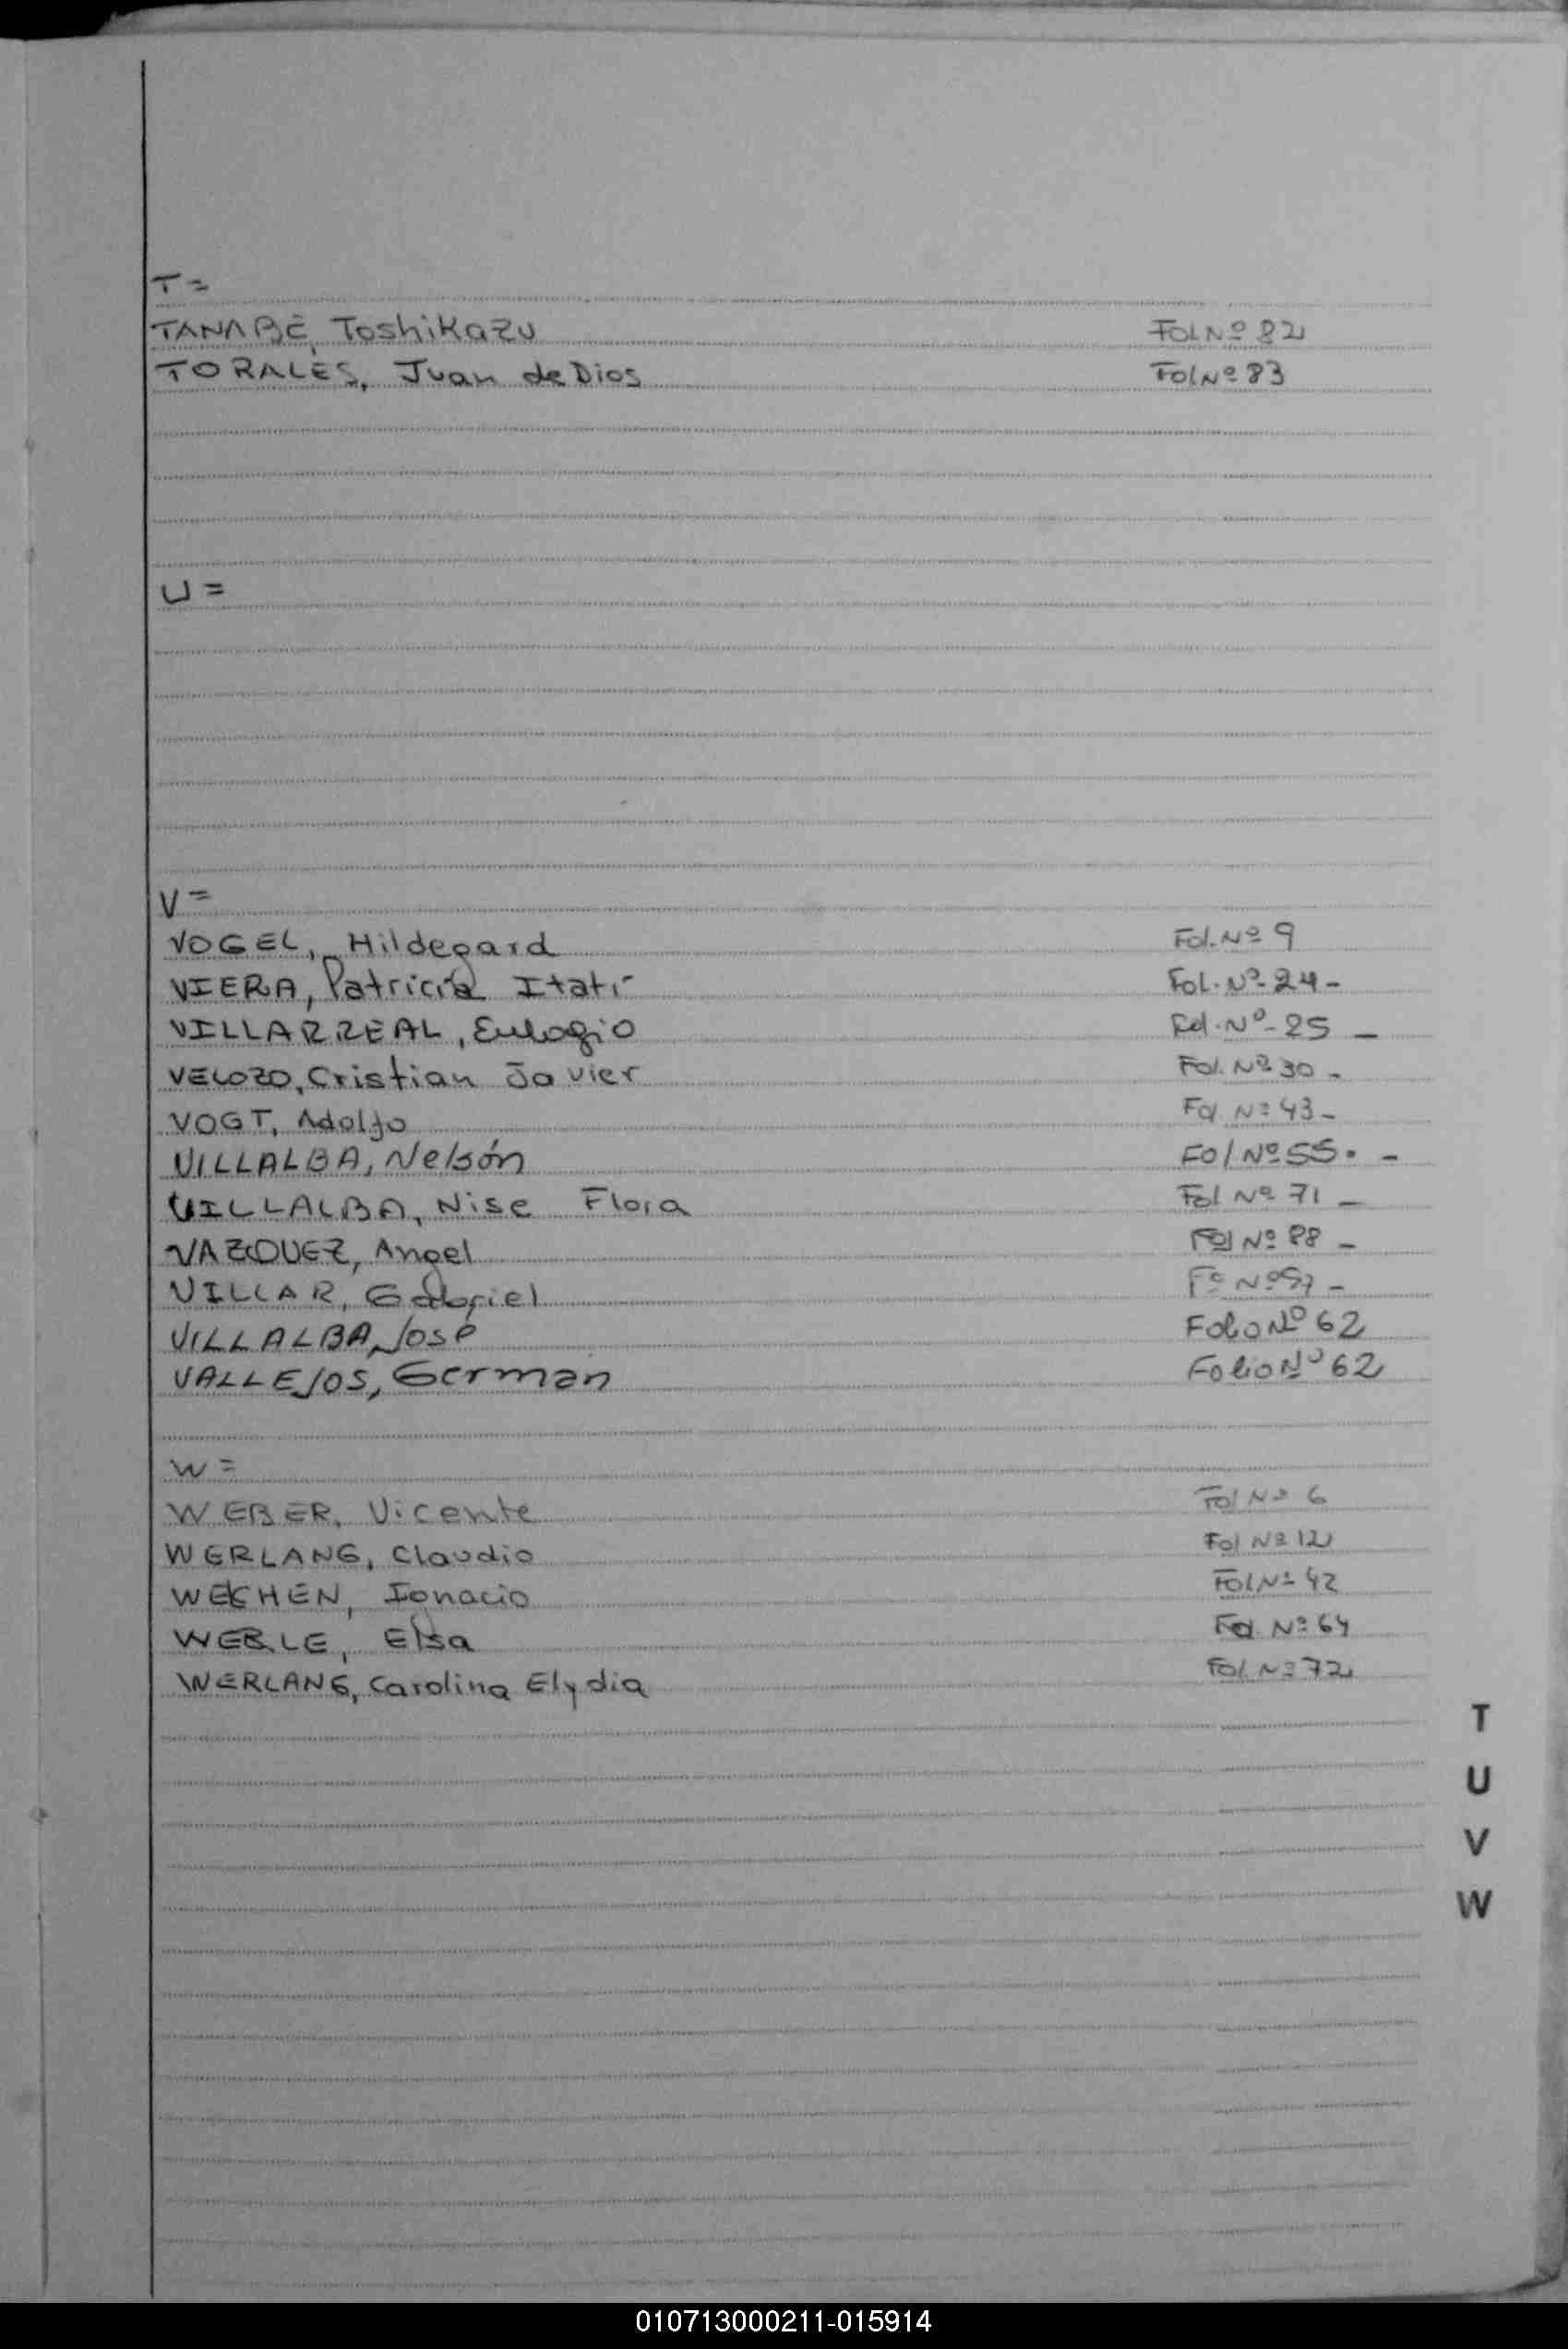 T=
TANABE, Toshikazu Fol Nº 82
TORALES, Juan de Dios Fol Nº 83
U=
V=
VOGEL, Hildegard Fol. Nº 9
VIERA, Patricia Itatí Fol. Nº 24-
VILLARREAL, Eulogio Fol. Nº 25 -
VELOZO, Cristian Javier Fol. Nº 30 -
VOGT, Adolfo Fol Nº 43-
VILLALBA, Nelsón Fol Nº 55. -
VILLALBA, Nise Flora Fol Nº 71 -
VAZQUEZ, Angel Fol Nº 88 -
VILLAR, Gabriel Fº Nº 57 -
VILLALBA, José Folio Nº 62
VALLEJOS, German Folio Nº 62
W=
WEBER, Vicente Fol Nº 6
WERLANG, Claudio Fol Nº 12
Ignacio Fol Nº 42
WEBLE, Elsa Fol Nº 64
WERLANG, Carolina Elydia Fol Nº 72
T
U
V
W
010713000211-015914